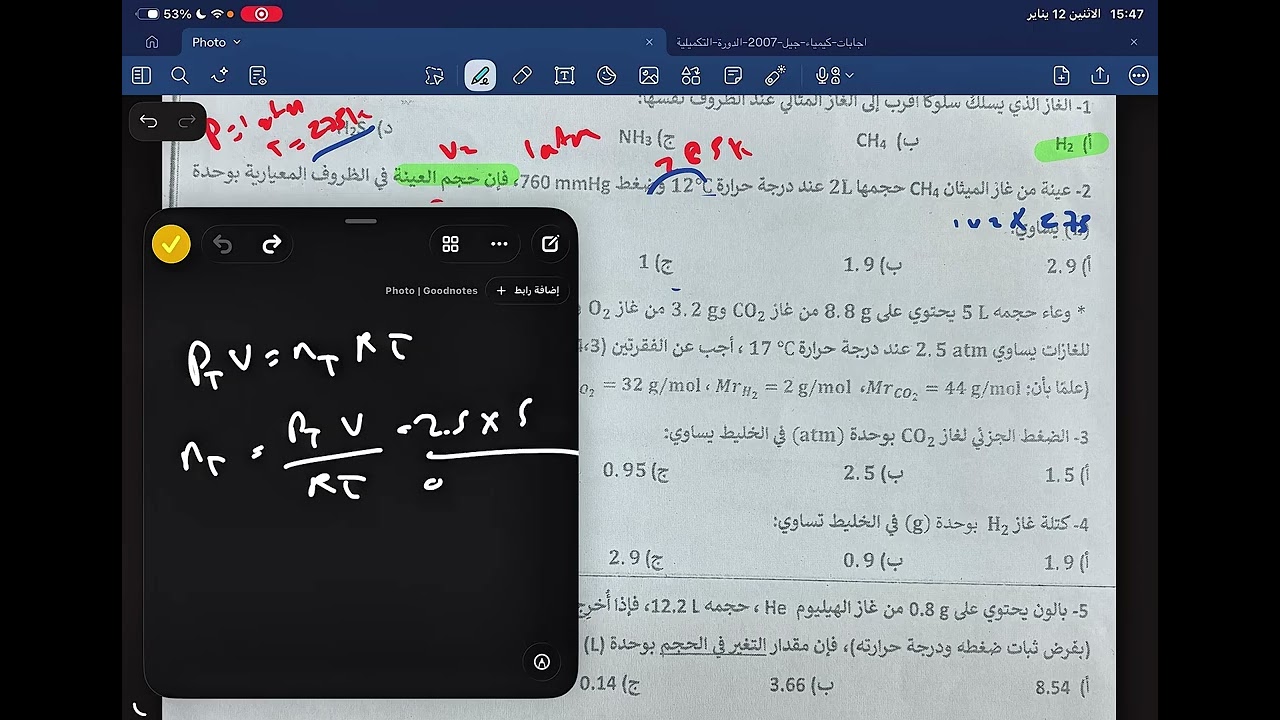 53%
15:47 الاثنين 12 يناير
Photo
اجابات-كيمياء-جيل-2007-الدورة-التكميلية
1- الغاز الذي يسلك سلوكًا أقرب إلى الغاز المثالي عند الظروف نفسها:
أ) H₂ ب) CH₄ ج) NH₃ د) H₂S
P=1 atm
T=273k
V= 1 atm
285k
2- عينة من غاز الميثان CH₄ حجمها 2L عند درجة حرارة 12°C وضغط 760 mmHg، فإن حجم العينة في الظروف المعيارية بوحدة
(L) يساوي:
أ) 2.9 ب) 1.9 ج) 1
* وعاء حجمه 5 L يحتوي على 8.8 g من غاز CO₂ و3.2 g من غاز O₂
للغازات يساوي 2.5 atm عند درجة حرارة 17 °C، أجب عن الفقرتين (4،3)
(علمًا بأن: Mr_CO₂ = 44 g/mol، Mr_H₂ = 2 g/mol، O₂ = 32 g/mol
3- الضغط الجزئي لغاز CO₂ بوحدة (atm) في الخليط يساوي:
أ) 1.5 ب) 2.5 ج) 0.95
4- كتلة غاز H₂ بوحدة (g) في الخليط تساوي:
أ) 1.9 ب) 0.9 ج) 2.9
5- بالون يحتوي على 0.8 g من غاز الهيليوم He، حجمه 12.2 L، فإذا أُخرِج
(بفرض ثبات ضغطه ودرجة حرارته)، فإن مقدار التغير في الحجم بوحدة (L)
أ) 8.54 ب) 3.66 ج) 0.14
إضافة رابط +
Photo | Goodnotes
P_T V = n_T R T
n_T = P_T V / RT = 2.5 x 5 / 0